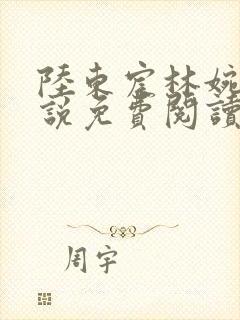 陸東宧林婉
說免費閱讀
周宇